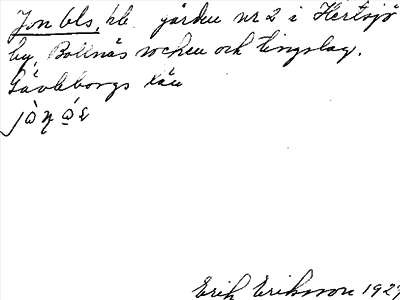 Jon Ols, hb. gården nr 2 i Hertsjö
by, Bollnäs socken och tingslag.
Gävleborgs län
Erik Eriksson 1927